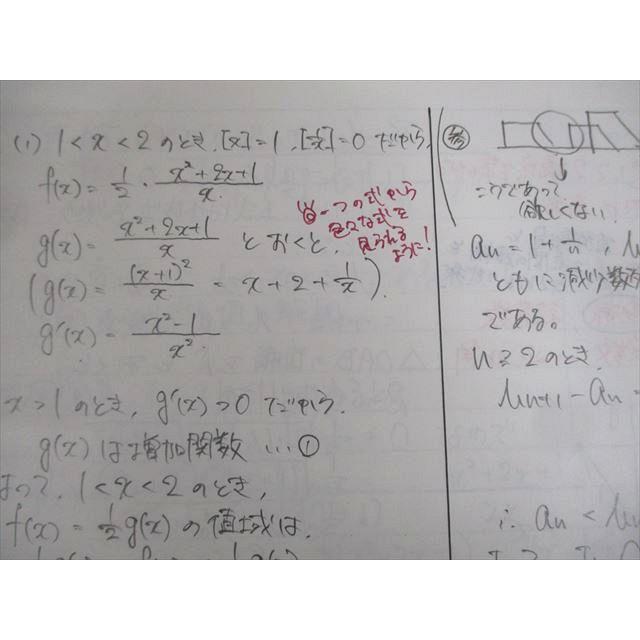 (i) 1 < x < 2 のとき, [x] = 1, [1/x] = 0 だから,
f(x) = 1/2 · (x²+2x+1)/x
g(x) = (x²+2x+1)/x とおくと,
一つの式から
色々な式を
見られる
ように!
(g(x) = (x+1)²/x = x + 2 + 1/x).
g'(x) = (x²-1)/x²
x > 1 のとき, g'(x) > 0 だから,
g(x) は増加関数 … ①
よって, 1 < x < 2 のとき,
f(x) = 1/2 g(x) の値域は,
参
こうであって
欲しくない!
an = 1 + 1/n ,
ともに減少数列
である。
n ≧ 2 のとき,
- an =
∴ an <